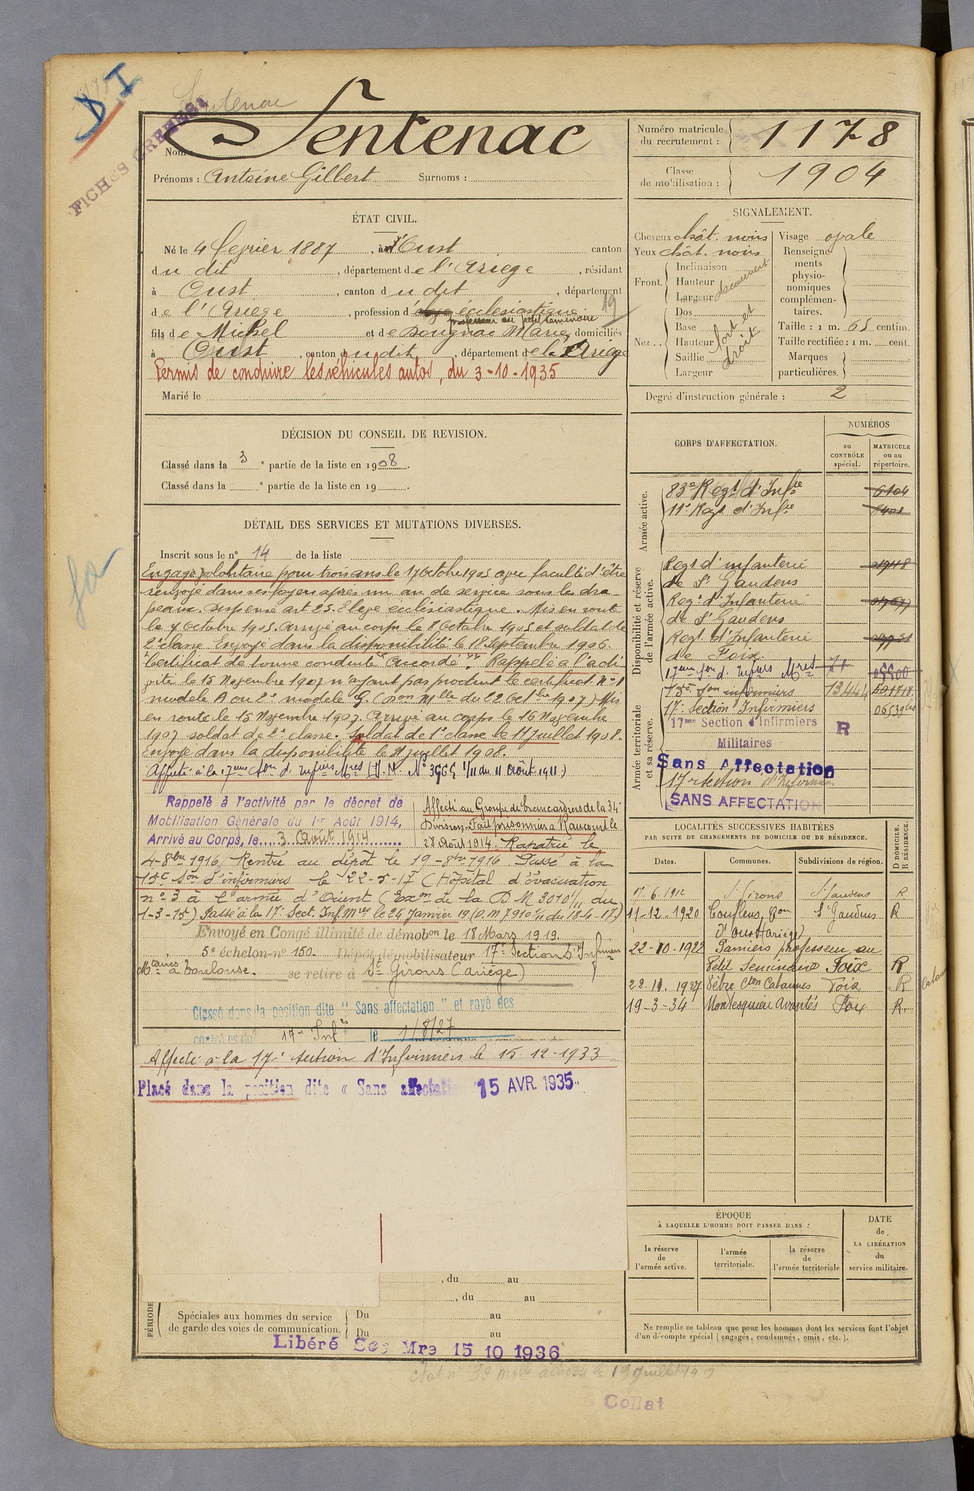 D I
Sentenac
FICHES
Nom : Sentenac
Prénoms : Antoine Gilbert Surnoms :
Numéro matricule du recrutement : 1178
Classe de mobilisation : 1904
ÉTAT CIVIL.
Né le 4 février 1887, à Oust canton
du dit, département de l'Ariège, résidant
à Oust, canton du dit, département
de l'Ariège, profession d écclésiastique 19
professeur au petit séminaire
fils de Michel et de Marie domiciliés
à Oust, canton du dit, département de l'Ariège
Permis de conduire les véhicules autos, du 3-10-1935
Marié le
SIGNALEMENT.
Cheveux chât. noirs Visage ovale
Yeux chât. noirs Renseignements physionomiques complémentaires.
Front. Inclinaison Hauteur Largeur découvert
Nez.. Dos Base Hauteur Saillie Largeur fort et droit
Taille : 1 m. 65 centim.
Taille rectifiée : 1 m. cent.
Marques particulières.
Degré d'instruction générale : 2
DÉCISION DU CONSEIL DE REVISION.
Classé dans la 3e partie de la liste en 1908.
Classé dans la e partie de la liste en 19 .
DÉTAIL DES SERVICES ET MUTATIONS DIVERSES.
Inscrit sous le n° 14 de la liste
Engagé volontaire pour trois ans le 17 Octobre 1905 avec faculté d'être
renvoyé dans ses foyers après un an de service sous les dra-
peaux. dispensé art 23. Elève ecclésiastique. Mis en route
le 7 Octobre 1905. Arrivé au corps le 8 Octobre 1905 et soldat de
2e classe. Envoyé dans la disponibilité le 18 Septembre 1906.
Certificat de bonne conduite "accordé". Rappelé à l'acti
vité le 15 Novembre 1907 n'ayant pas produit le certificat N° 1
modèle A ou 2e modèle G. (Don Mlle du 22 Octobre 1907) Mis
en route le 15 Novembre 1907. Arrivé au corps le 16 Novembre
1907 soldat de 2e classe. Soldat de 1e classe le 11 juillet 1908.
Envoyé dans la disponibilité le 11 juillet 1908.
Affecté à la 17eme Son d. Infirs Mres (I.M. N° 3969 1/11 du 11 Août 1911)
Rappelé à l'activité par le décret de
Mobilisation Générale du 1er Août 1914,
Arrivé au Corps, le 3 Août 1914
Affecté au Groupe de brancardiers de la 34e
Division. Fait prisonnier à Raucourt le
28 Août 1914. Rapatrié le
4-8bre 1916. Rentré au dépôt le 19-8bre 1916 Passé à la
15e Son d'infirmiers le 22-5-17 (Hôpital d'évacuation
n° 3 à l'armée d'Orient (Exon de la D.M. 3010/11 du
1-3-15) Passé à la 17e Sect. Inf Mres le 24 Janvier 19 (D.M. 7910 1/11 du 18-4-17)
Envoyé en Congé illimité de démobon le 18 Mars 1919.
5e échelon n° 150. Dépôt démobilisateur 17e Section d'Infirmiers
Mtaires à Toulouse. se retire à St Girons (Ariège)
Classé dans la position dite "Sans affectation" et rayé des
contrôles du 17e Infres le 1/8/27
Affecté à la 17e section d'Infirmiers le 15-12-1933
Placé dans la position dite « Sans affectation 15 AVR. 1935
CORPS D'AFFECTATION.
NUMÉROS
au CONTRÔLE spécial.
MATRICULE ou au répertoire.
Armée active.
83e Regt d'Infie 6104
11e Regt d'Infie
Disponibilité et réserve de l'armée active.
Regt d'infanterie
de St Gaudens
Regt d'Infanterie
de St Gaudens
Regt d'Infanterie
de Foix
17eme Son d. Infirs Mres 71 05500
15e Son infirmiers 13444
Armée territoriale et sa réserve.
17e Section Infirmiers
17me Section d'Infirmiers R
Militaires
Sans Affectation
17e section d'Infirmiers
SANS AFFECTATION
LOCALITÉS SUCCESSIVES HABITÉES
PAR SUITE DE CHANGEMENTS DE DOMICILE OU DE RÉSIDENCE.
Dates. Communes. Subdivisions de région. D DOMICILE. R RÉSIDENCE.
17.6.1912 St Girons St Gaudens R
11-12-1920 Couflens, Con St Gaudens R
d'Oust (Ariège)
22-10-1922 Pamiers professeur au
Petit Séminaire Foix R
22.10.1927 Con Cabannes Foix R
19-3-34 Montesquieu Avantès Foix R.
ÉPOQUE
À LAQUELLE L'HOMME DOIT PASSER DANS :
la réserve de l'armée active.
l'armée territoriale.
la réserve de l'armée territoriale
DATE de LA LIBÉRATION du service militaire.
Ne remplir ce tableau que pour les hommes dont les services font l'objet
d'un décompte spécial (engagés, condamnés, omis, etc.).
, du au
, du au
PÉRIODE
Spéciales aux hommes du service Du au
de garde des voies de communication. Du au
Libéré Mre 15 10 1936
19 juillet
Collat